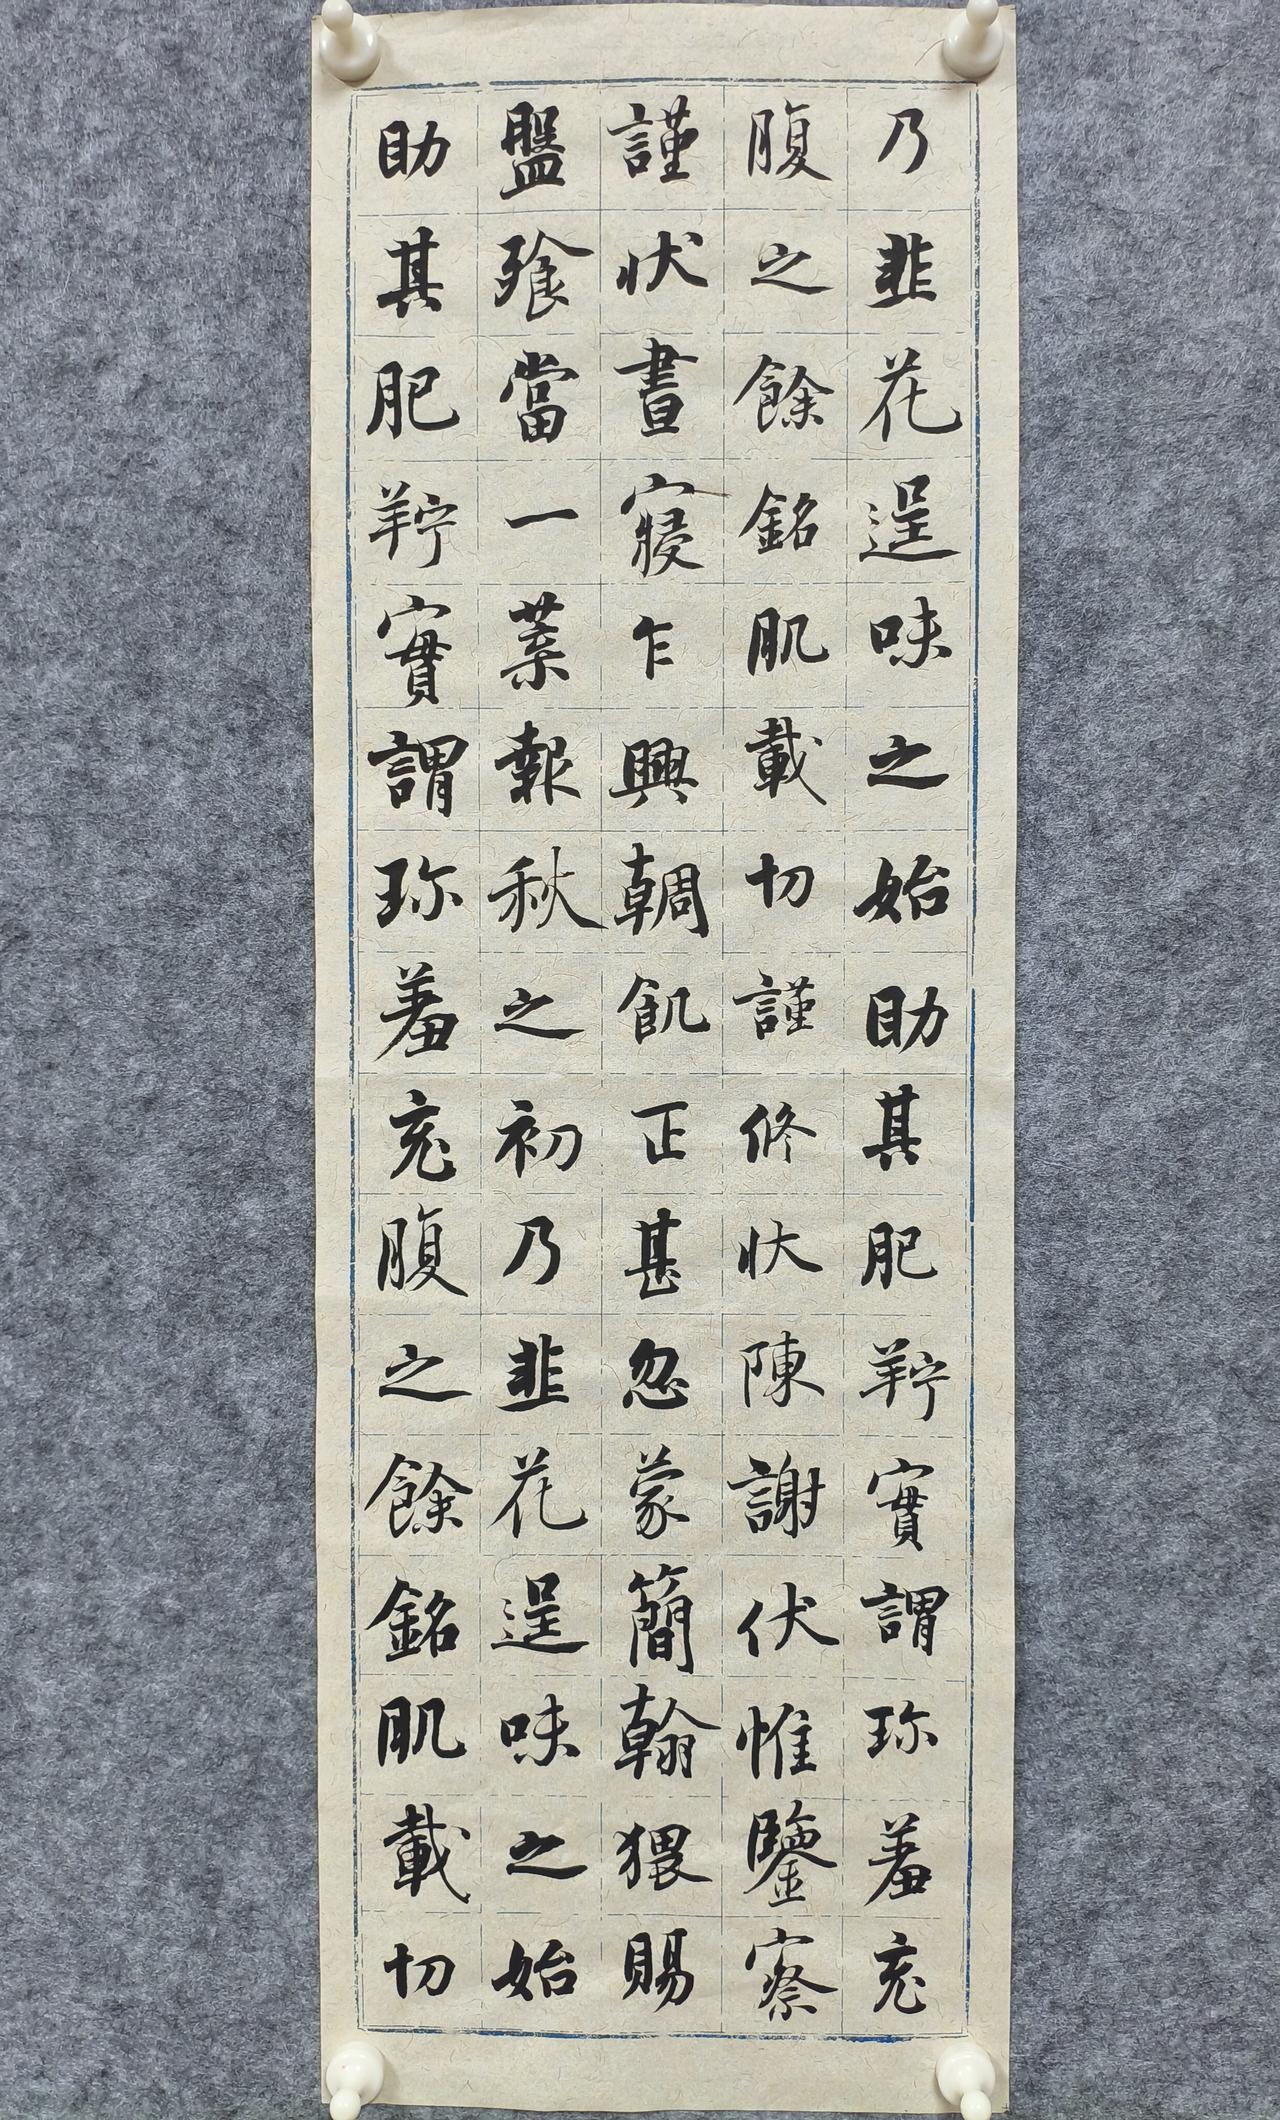 乃韭花逞味之始助其肥羜實謂珎羞充
腹之餘銘肌載切謹修狀陳謝伏惟鑒察
謹狀晝寢乍興輖飢正甚忽蒙簡翰猥賜
盤飧當一葉報秋之初乃韭花逞味之始
助其肥羜實謂珎羞充腹之餘銘肌載切